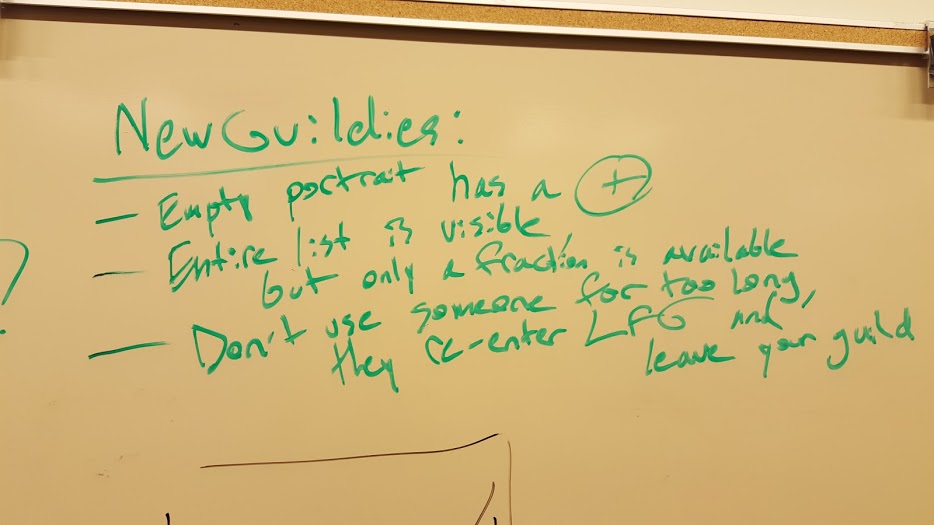 New Guildies:
— Empty portrait has a ⊕
— Entire list is visible,
but only a fraction is available
— Don't use someone for too long,
they re-enter LFG and
leave your guild
?